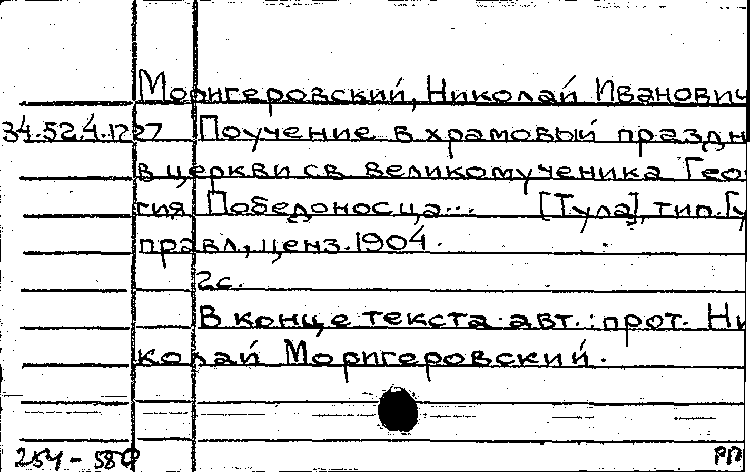 Моригеровский, Николай Иванович
34.52.4.1227 Поучение в храмовый праздн
в церкви св великомученика Гео
гия Победоносца... [Тула], тип. Гу
правл., ценз. 1904.
2с.
В конце текста авт.: прот. Ни
колай Моригеровский.
254-580 РП